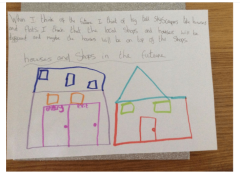 When I think of the future I think of big tall Skyscrapers like houses
and flats I think that the local shops and houses will be
and maybe the houses will be on top of the shops.
Houses and Shops in the Future